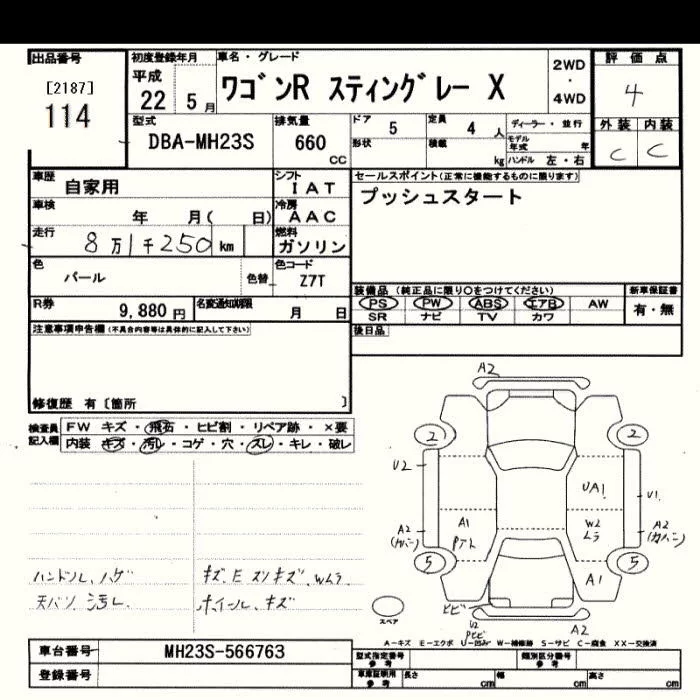 出品番号
[2187]
114
初度登録年月
平成
22 5月
車名・グレード
ワゴンR スティングレー X
2WD
・
4WD
評価点
4
外装 内装
C C
型式
DBA-MH23S
排気量
660
CC
ドア 5
定員 4 人
形状
積載 kg
ディーラー・並行
モデル年式 年
ハンドル 左・右
車歴
自家用
シフト
IAT
セールスポイント(正常に機能するものに限ります)
プッシュスタート
車検
年 月( 日)
冷房
AAC
走行
8万1千250km
燃料
ガソリン
色
パール
色替
色コード
Z7T
装備品 (純正品に限り○をつけてください)
新車保証書
PS PW ABS エアB AW
有・無
SR ナビ TV カワ
R券
9,880円
名変通知期限
月 日
後日品
注意事項申告欄(不具合内容等は具体的に記入して下さい)
修復歴 有〔箇所 〕
検査員記入欄
FW キズ・飛石・ヒビ割・リペア跡・×要
内装 キズ・汚レ・コゲ・穴・スレ・キレ・破レ
A2
2 2
U2
UA1
U1
A2
(カバー)
A1
W2
ムラ
A2
(カバー)
5 5
A1
ハンドル、ハゲ
天バリ 汚レ
キズ、E スリキズ、Wムラ
ホイール、キズ
スペア
ヒビ
U2
A2
A-キズ E-エクボ U-凹み W-補修跡 S-サビ C-腐食 XX-交換済
車台番号
MH23S-566763
登録番号
型式指定番号
参考
類別区分番号
参考
車庫証明用
参考
長さ cm
幅 cm
高さ cm